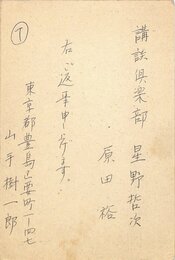 ⑦
講談倶楽部 星野哲次
原田裕
右ご返事申上げます。
東京都豊島区要町一ー四七
山手樹一郎